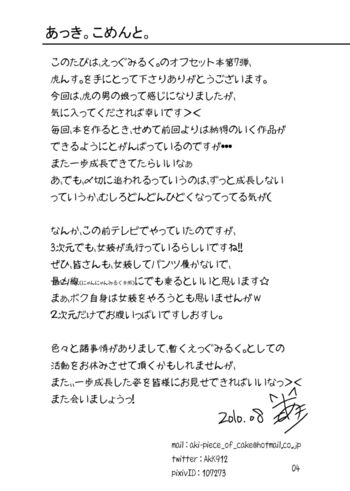 あっき。こめんと。
このたびは、えっぐみるく。のオフセット本第7弾、
虎んす。を手にとって下さりありがとうございます。
今回は、虎の男の娘って感じになりましたが、
気に入ってくだされば幸いです><
毎回、本を作るとき、せめて前回よりは納得のいく作品が
できるようにとがんばっているのですが•••
また一歩成長できてたらいいなぁ
あ、でも、〆切に追われるっていうのは、ずっと成長しない
っていうか、むしろどんどんひどくなってってる気が(
なんか、この前テレビでやっていたのですが、
3次元でも、女装が流行っているらしいですね!!
ぜひ、皆さんも、女装してパンツ履かないで、
にでも乗るといいと思います☆
まぁ、ボク自身は女装をやろうとも思いませんがw
2次元だけでお腹いっぱいですしおすし。
色々と諸事情がありまして、暫くえっぐみるく。としての
活動をお休みさせて頂くかもしれませんが、
また、、一歩成長した姿を皆様にお見せできればいいなっ><
また会いましょうっ!
2010.08
mail : aki-piece_of_cake@hotmail.co.jp
twitter : AkK912
pixivID : 107273
04